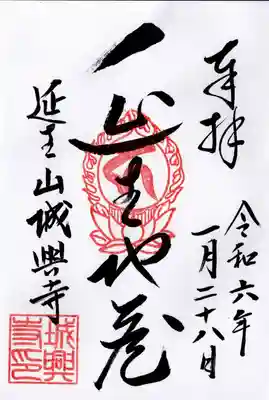 奉拝
令和六年
一月二十八日
延生地蔵
延生山城興寺
城興寺印